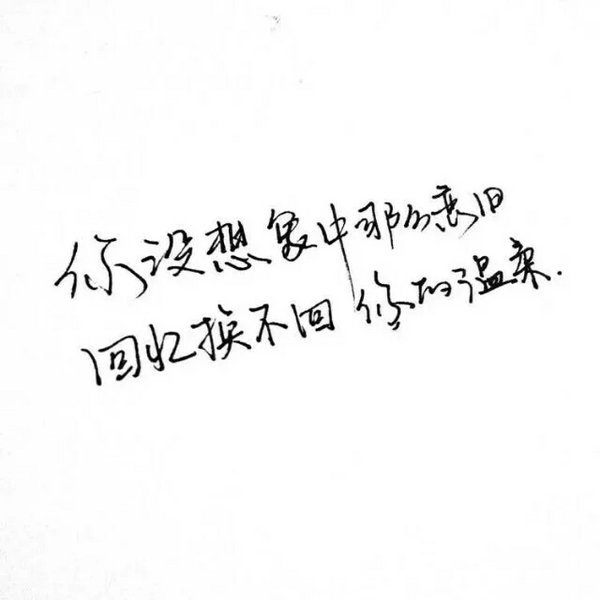 你没想象中那么恋旧
回忆换不回你的温柔.